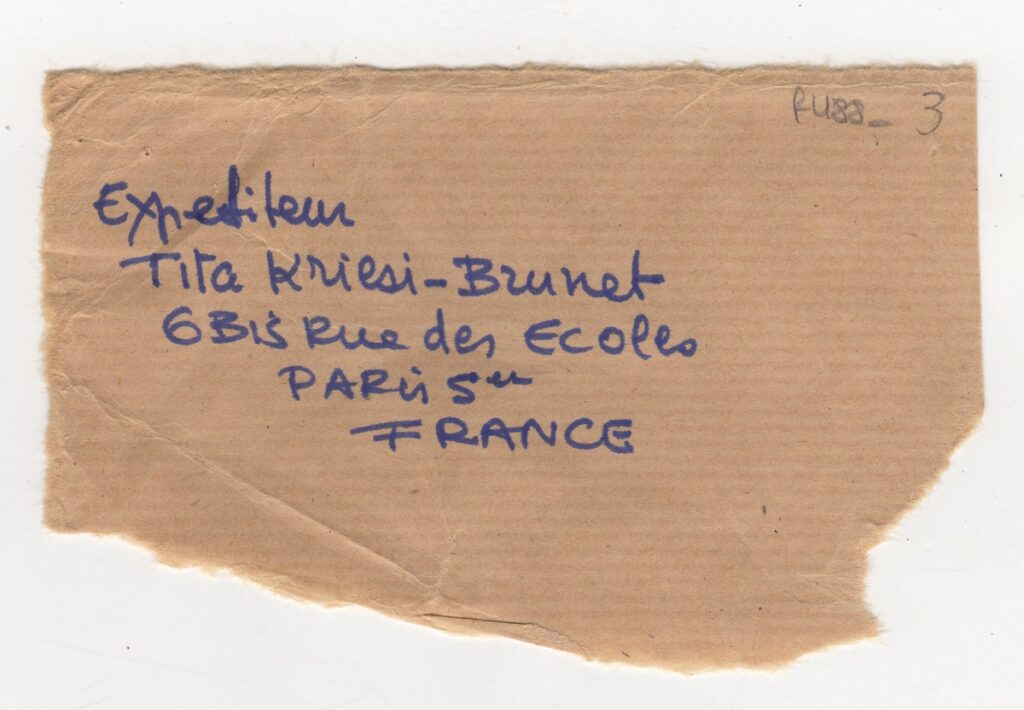 RU88_ 3
Expediteur
Tita Kriesi-Brunet
6 Bis Rue des Ecoles
PARis 5em
FRANCE